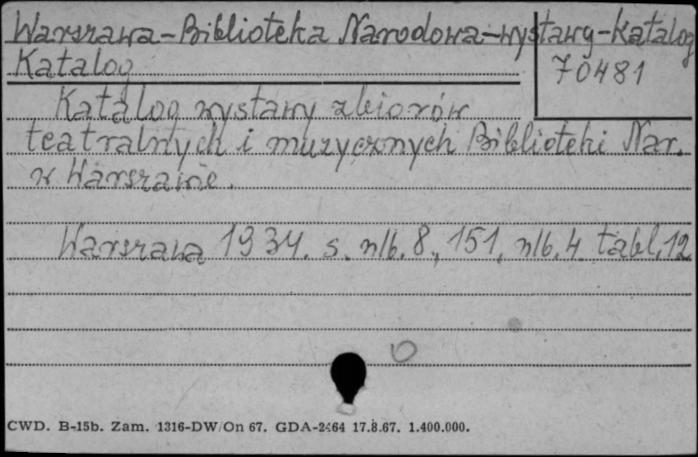 Warszawa-Biblioteka Narodowa-wystawy-Katalog
Katalog
70481
Katalog wystawy zbiorów
teatralnych i muzycznych Biblioteki Nar.
w Warszawie.
Warszawa 1934. s. nlb. 8, 151, nlb. 4. tabl. 12
CWD. B-15b. Zam. 1316-DW/On 67. GDA-2464 17.8.67. 1.400.000.